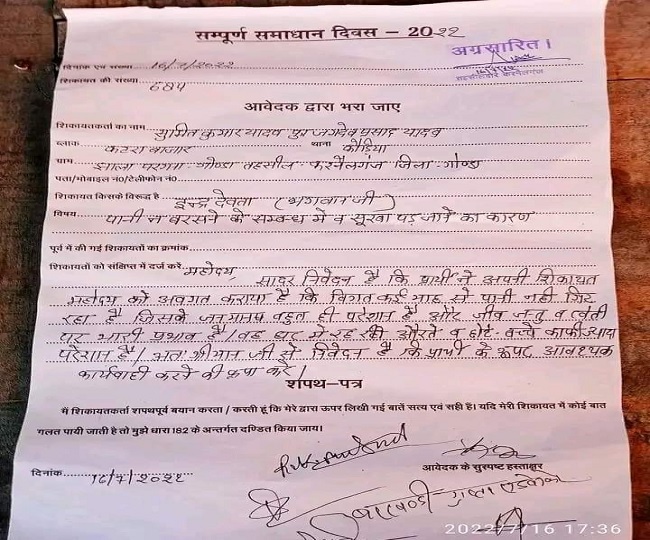 सम्पूर्ण समाधान दिवस – 2022
अग्रसारित।
दिनांक एवं संख्या 16/7/2022
शिकायत की संख्या 684
आवेदक द्वारा भरा जाए
शिकायतकर्ता का नाम सुमित कुमार यादव पुत्र जगदेव प्रसाद यादव
ब्लाक कटरा बाजार थाना कौड़िया
ग्राम झाला परगना गोण्डा तहसील करनैलगंज जिला गोण्डा
पता/मोबाइल नं0/टेलीफोन नं0
शिकायत किसके विरुद्ध है इन्द्र देवता (भगवान जी)
विषय पानी न बरसने के सम्बन्ध में व सूखा पड़ जाने का कारण
पूर्व में की गई शिकायतों का क्रमांक
शिकायतों को संक्षिप्त में दर्ज करें महोदय,
सादर निवेदन है कि प्रार्थी ने अपनी शिकायत
महोदय को अवगत कराया है कि विगत कई माह से पानी नही गिर
रहा है जिससे जनमानष बहुत ही परेशान है और जीव जन्तु व खेती
पर भारी प्रभाव है। घर में रह रही औरते व छोटे बच्चे काफी ज्यादा
परेशान है। अतः श्रीमान जी से निवेदन है कि प्रार्थी के ऊपर आवश्यक
कार्यवाही करने की कृपा करें।
शपथ-पत्र
में शिकायतकर्ता शपथपूर्व बयान करता / करती हूं कि मेरे द्वारा ऊपर लिखी गई बातें सत्य एवं सही है। यदि मेरी शिकायत में कोई बात
गलत पायी जाती है तो मुझे धारा 182 के अन्तर्गत दण्डित किया जाय।
आवेदक के सुस्पष्ट हस्ताक्षर
दिनांक 16/7/2022
2022/7/16 17:36